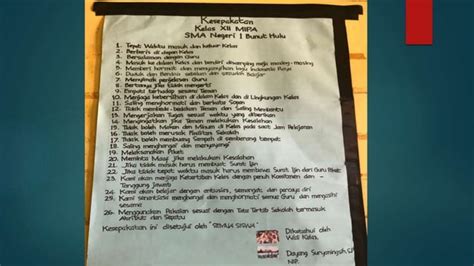 Kesepakatan
Kelas XII MIPA
SMA Negeri 1 Bunut Hulu
1. Tepat Waktu masuk dan keluar Kelas
2. Berbaris di depan Kelas
3. Bersalaman dengan Guru
4. Masuk ke dalam Kelas dan berdiri disamping meja masing-masing
5. Memberi hormat dan menyanyikan lagu Indonesia Raya
6. Duduk dan Berdoa sebelum dan sesudah Belajar
7. Menyimak penjelasan Guru
8. Bertanya jika tidak mengerti
9. Empati terhadap sesama Teman
10. Menjaga kebersihan di dalam Kelas dan di Lingkungan Kelas
11. Saling menghormati dan berkata Sopan
12. Tidak membeda-bedakan Teman dan Saling Membantu
13. Mengerjakan Tugas sesuai waktu yang diberikan
14. Mengingatkan jika Teman melakukan Kesalahan
15. Tidak boleh Makan dan Minum di Kelas pada saat Jam Pelajaran
16. Tidak boleh merusak Fasilitas Sekolah
17. Tidak boleh membuang Sampah di sembarang tempat
18. Saling menghargai dan menyayangi
19. Melaksanakan Piket
20. Meminta Maaf Jika melakukan Kesalahan
21. Jika tidak masuk harus membuat Surat Ijin
22. Jika tidak tepat waktu masuk harus membawa Surat Ijin dari Guru Piket
23. Kami akan menjaga Ketertiban Kelas dengan penuh Komitmen dan
Tanggung Jawab
24. Kami akan belajar dengan antusias, semangat, dan percaya diri
25. Kami senantiasa menghargai dan menghormati semua Guru dan mengasihi
sesama
26. Menggunakan Pakaian sesuai dengan Tata Tertib Sekolah termasuk
Atribut dan Sepatu
Kesepakatan ini disetujui oleh "SEMUA SISWA"
Diketahui oleh
Wali Kelas,
Dayang Suryaningsih, S.P
NIP.